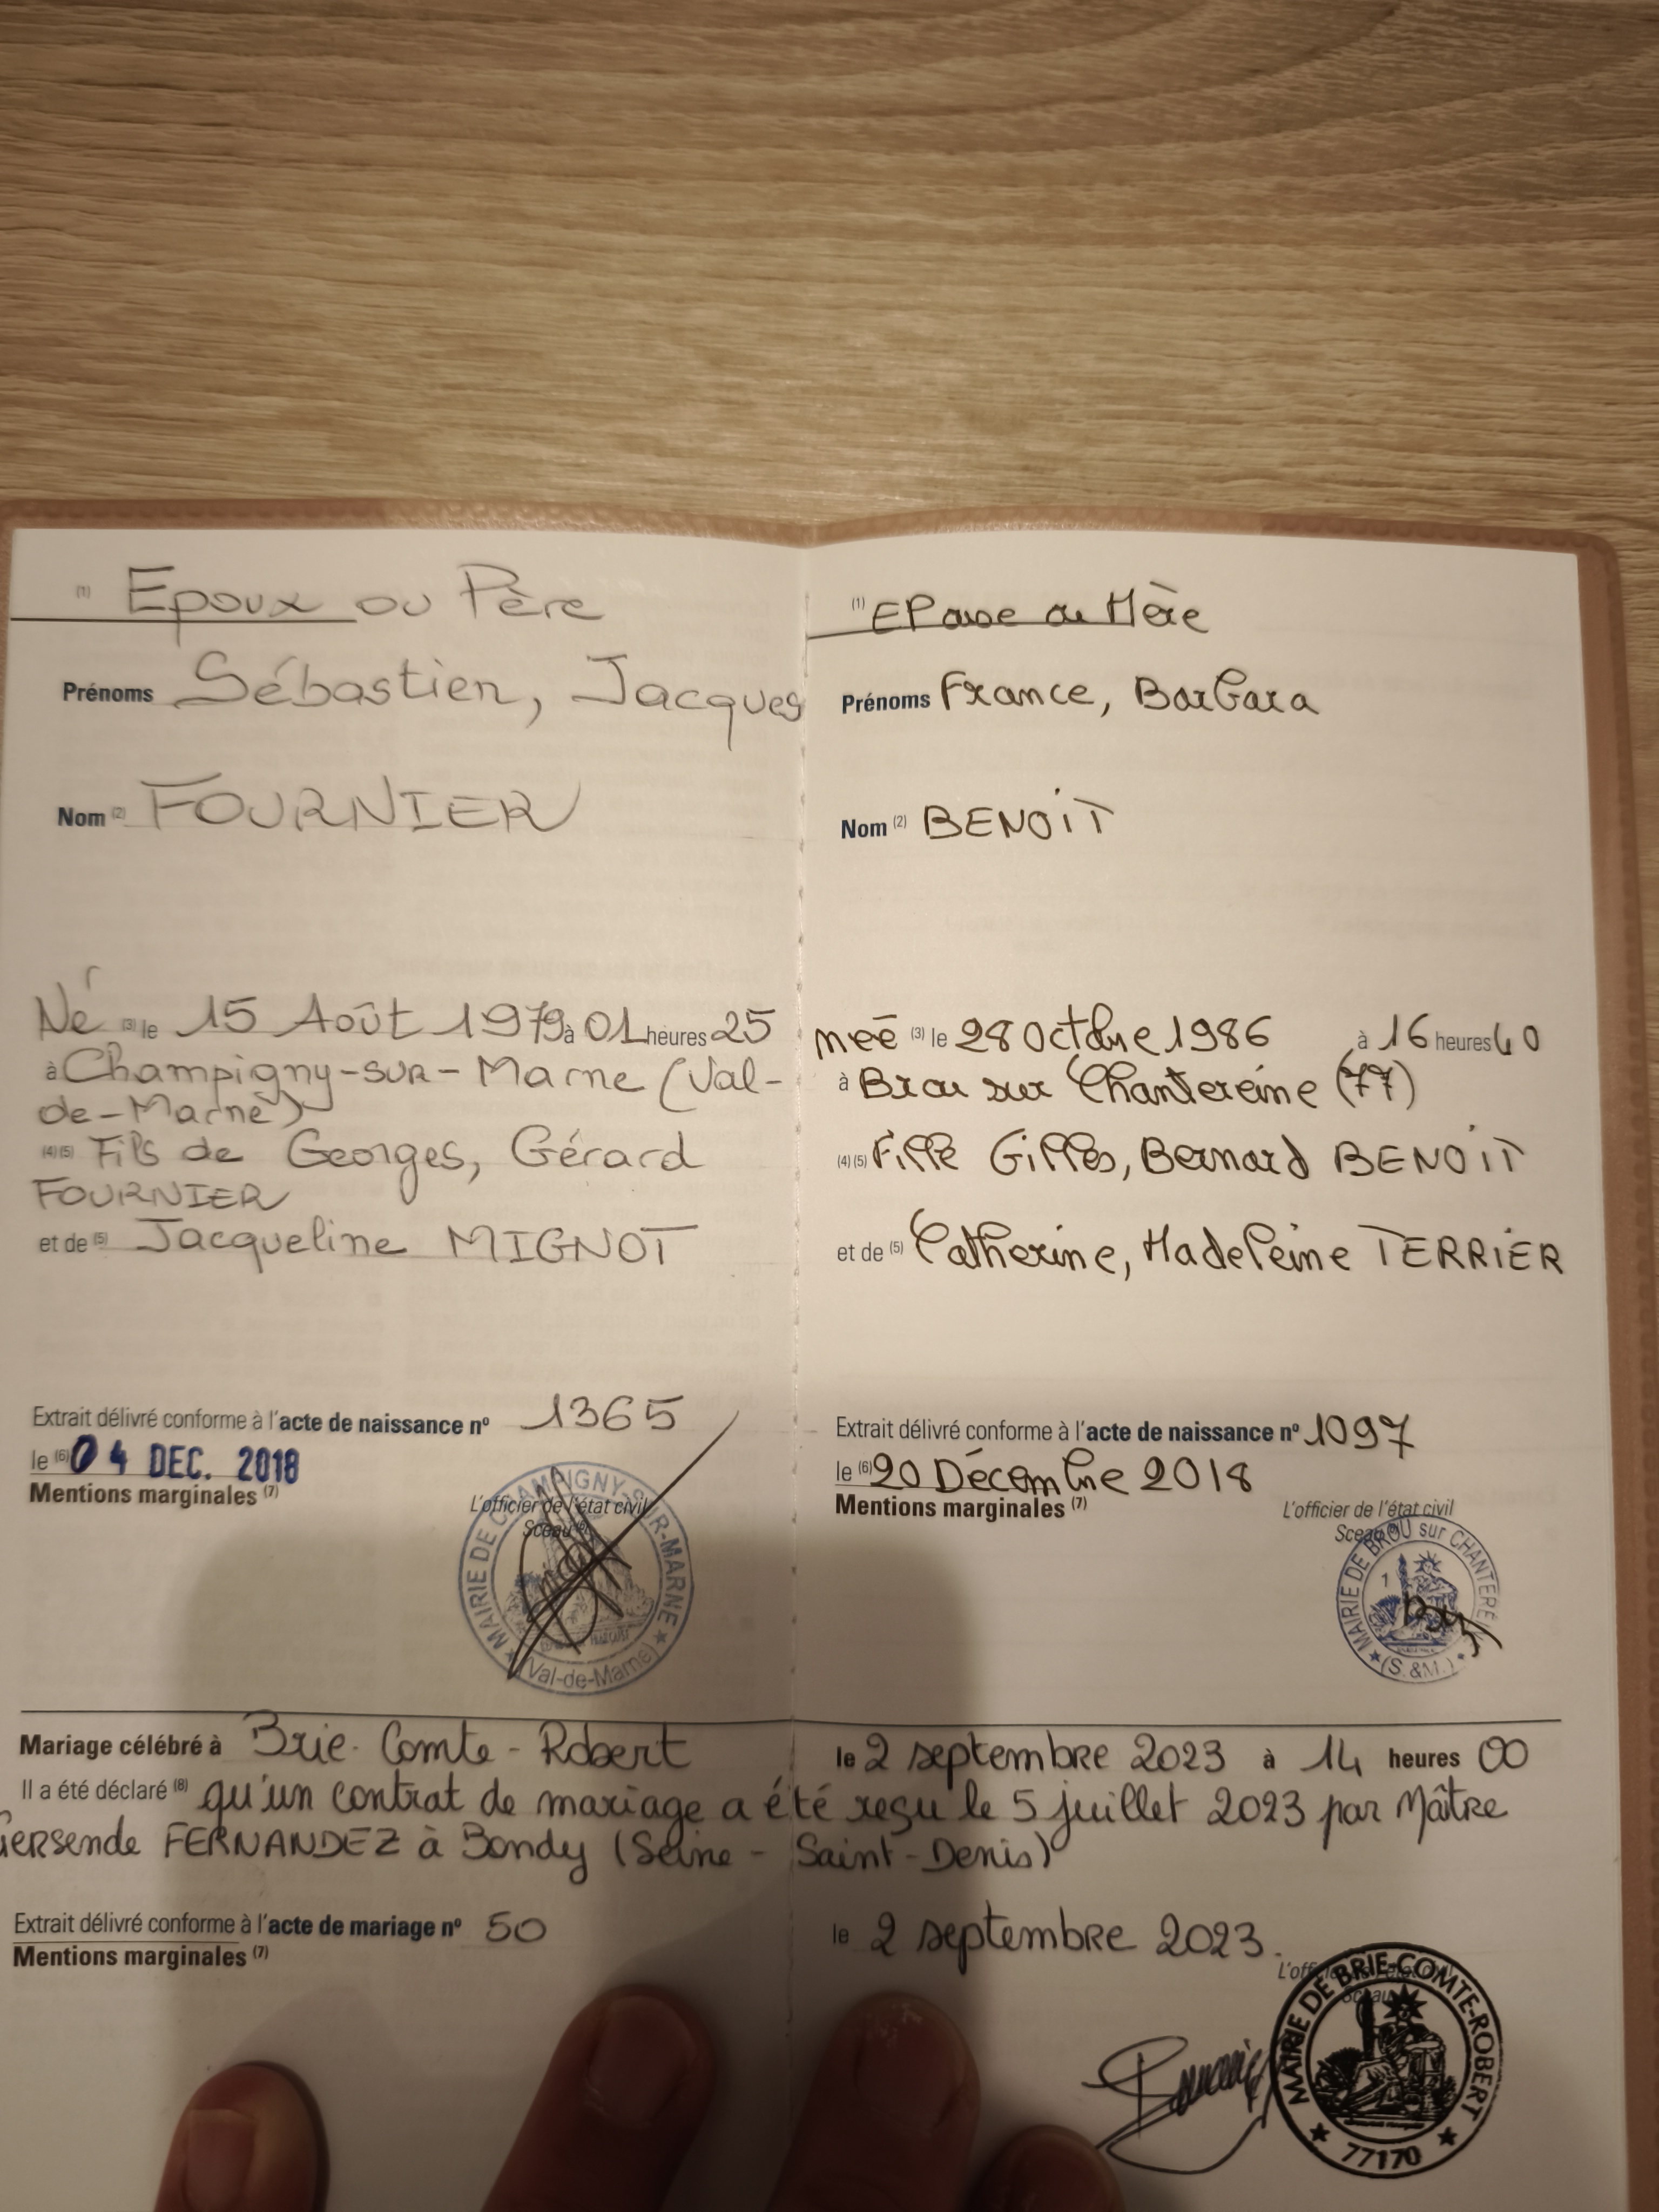 (1) Epoux ou Père
Prénoms Sébastien, Jacques
Nom (2) FOURNIER
Né (3) le 15 Août 1979 à 01 heures 25
à Champigny-sur-Marne (Val-
de-Marne)
(4) (5) Fils de Georges, Gérard
FOURNIER
et de (5) Jacqueline MIGNOT
Extrait délivré conforme à l'acte de naissance nº 1365
le (6) 04 DEC. 2018
Mentions marginales (7)
L'officier de l'état civil
Sceau (6)
MAIRIE DE CHAMPIGNY-SUR-MARNE
(Val-de-Marne)
(1) EPouse ou Mère
Prénoms France, Barbara
Nom (2) BENOiT
née (3) le 28 Octobre 1986 à 16 heures 40
à Brou sur Chantereine (77)
(4) (5) Fille Gilles, Bernard BENOiT
et de (5) Catherine, Madeleine TERRiER
Extrait délivré conforme à l'acte de naissance nº 1097
le (6) 20 Décembre 2018
Mentions marginales (7)
L'officier de l'état civil
Sceau
MAIRIE DE BROU sur CHANTEREINE
1
(S.&M.)
Mariage célébré à Brie-Comte-Robert le 2 septembre 2023 à 14 heures 00
Il a été déclaré (8) qu'un contrat de mariage a été reçu le 5 juillet 2023 par Maître
Gersende FERNANDEZ à Bondy (Seine-Saint-Denis)
Extrait délivré conforme à l'acte de mariage nº 50 le 2 septembre 2023.
Mentions marginales (7)
L'officier de l'état civil
Sceau
MAIRIE DE BRIE-COMTE-ROBERT
77170